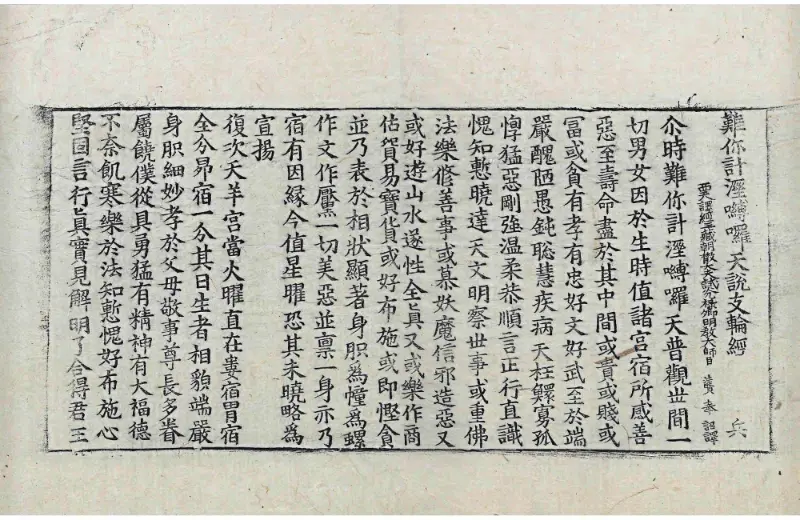 難你計溼嚩囉天說支輪經 兵
西天譯經三藏朝散大夫試鴻臚卿明教大師臣 法賢 奉 詔譯
尒時難你計溼嚩囉天普觀世間一
切男女因於生時值諸宮宿所感善
惡至壽命盡於其中間或貴或賤或
冨或貧有孝有忠好文好武至於端
嚴醜陋愚鈍聦慧疾病夭枉鰥寡孤
惸猛惡剛強温柔恭順言正行直識
愧知慙曉達天文明察世事或重佛
法樂修善事或慕妖魔信邪造惡又
或好遊山水遂性全真又或樂作商
估貿易寶貨或好布施或即慳貪
並乃表於相狀顯著身胑為幢為螺
作文作黶一切美惡並禀一身亦乃
宿有因緣今值星曜恐其未曉略為
宣揚
復次天羊宮當火曜直在婁宿胃宿
全分昴宿一分其日生者相貌端嚴
身胑細妙孝於父母敬事尊長多眷
屬饒僕從具勇猛有精神有大福德
不奈飢寒樂於法知慙愧好布施心
堅固言行真實見解明了合得君王